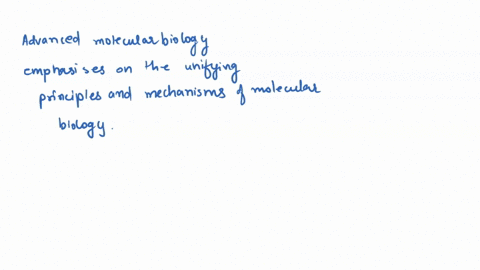 Advanced molecular biology
emphasises on the unifying
principles and mechanisms of molecular
biology.